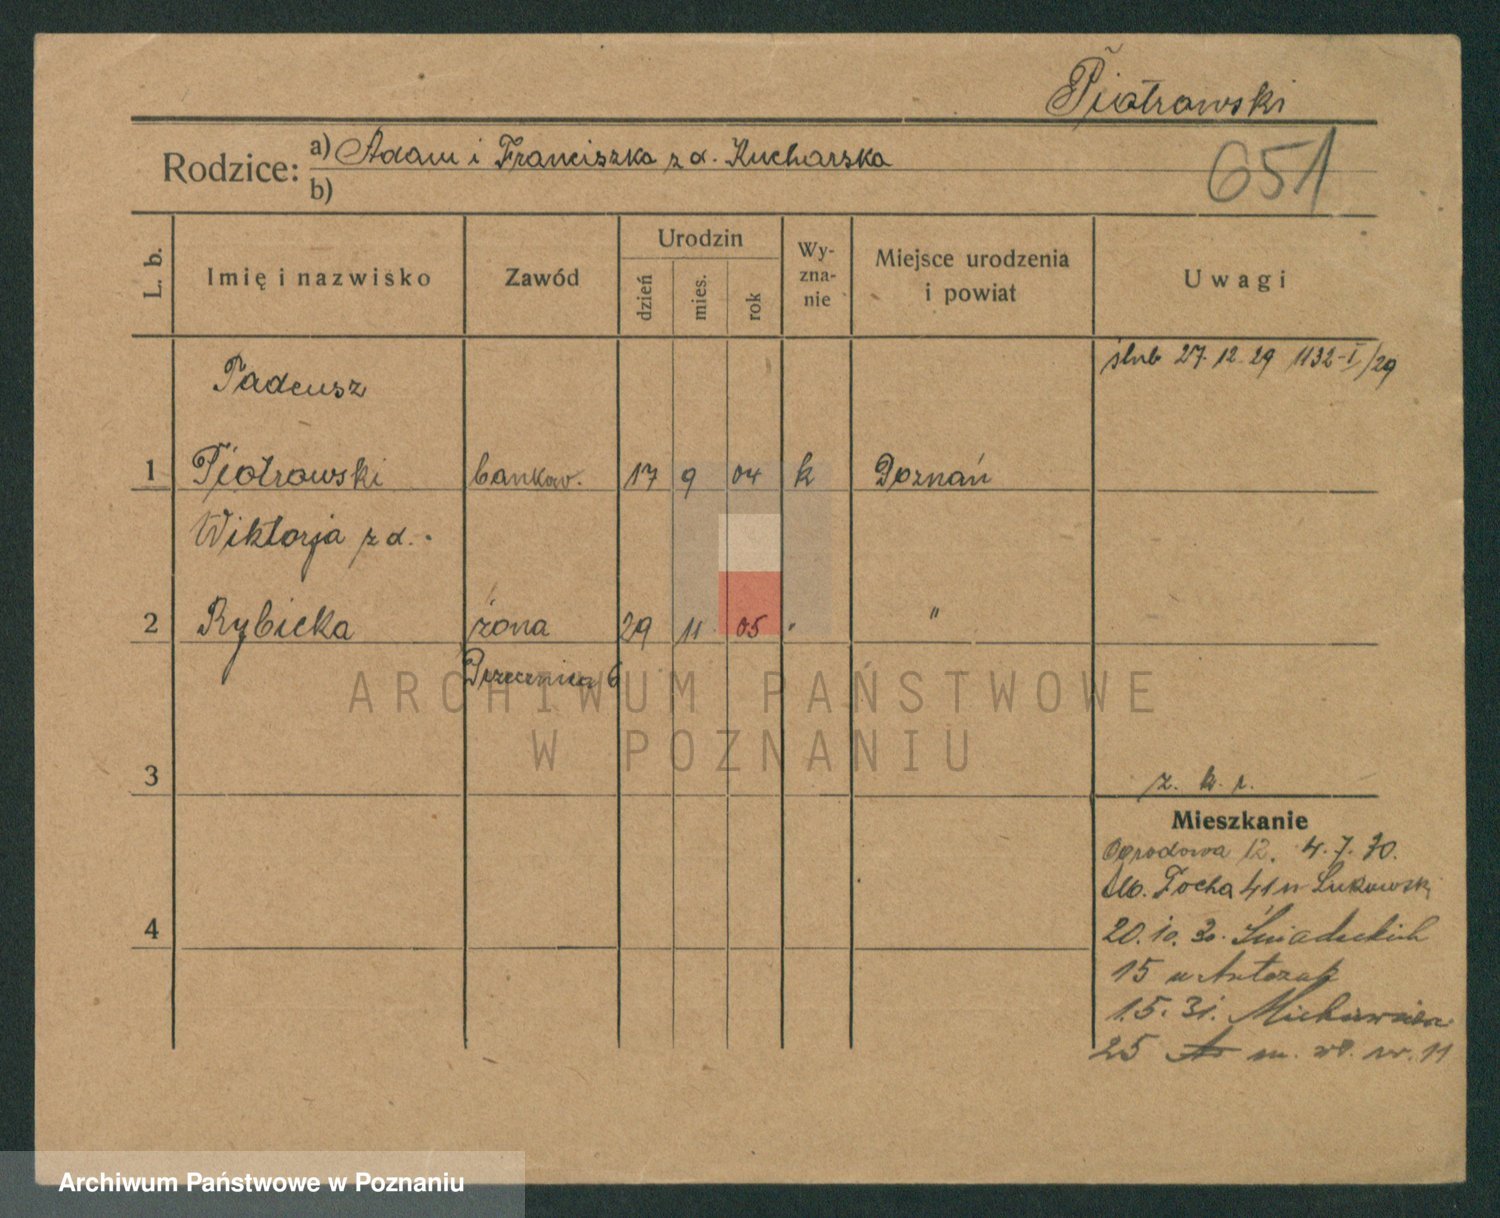 Piotrowski
651
Rodzice: a) Adam i Franciszka z d. Kucharska
b)
L. b.
Imię i nazwisko
Zawód
Urodzin
dzień
mies.
rok
Wy-
zna-
nie
Miejsce urodzenia
i powiat
Uwagi
ślub 27. 12. 29 1132-I/29
Tadeusz
1 Piotrowski bankow. 17 9 04 k Poznań
Wiktorja z d.
2 Rybicka żona 29 11 05 " "
6
3
z. k. r.
4
Mieszkanie
Ogrodowa 12. 4. 7. 30.
M. Focha 41 u Lukowski
20. 10. 30. Śniadeckich
15 u
1. 5. 31.
25 m. wł. nr. 11
ARCHIWUM PAŃSTWOWE
W POZNANIU
Archiwum Państwowe w Poznaniu